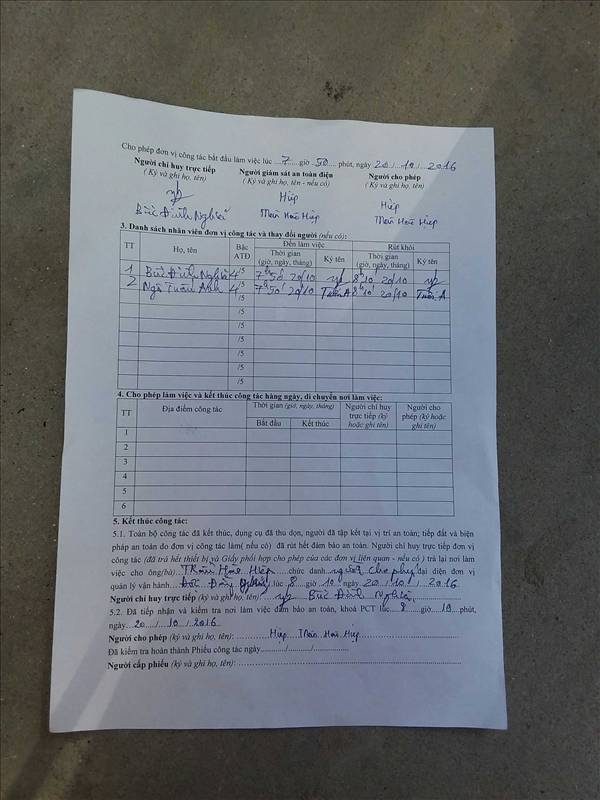 Cho phép đơn vị công tác bắt đầu làm việc lúc ...7... giờ ..50... phút, ngày 20 / 10 / 2016
Người chỉ huy trực tiếp Người giám sát an toàn điện Người cho phép
( Ký và ghi họ, tên) (Ký và ghi họ, tên - nếu có) ( Ký và ghi họ, tên)
Hiệp Hiệp
Bùi Đình Nghiã Trần Hoà Hiệp Trần Hoà Hiệp
3. Danh sách nhân viên đơn vị công tác và thay đổi người (nếu có):
TT Họ, tên Bậc ATĐ Đến làm việc Rút khỏi
Thời gian (giờ, ngày, tháng) Ký tên Thời gian (giờ, ngày, tháng) Ký tên
1 Bùi Đình Nghiã 4/5 7h50' 20/10 8h10' 20/10
2 Ngô Tuấn Anh 4/5 7h50' 20/10 Tuấn A 8h10' 20/10 Tuấn A
/5
/5
/5
/5
/5
/5
4. Cho phép làm việc và kết thúc công tác hàng ngày, di chuyển nơi làm việc:
TT Địa điểm công tác Thời gian (giờ, ngày, tháng) Người chỉ huy trực tiếp (ký hoặc ghi tên) Người cho phép (ký hoặc ghi tên)
Bắt đầu Kết thúc
1
2
3
4
5
6
5. Kết thúc công tác:
5.1. Toàn bộ công tác đã kết thúc, dụng cụ đã thu dọn, người đã tập kết tại vị trí an toàn; tiếp đất và biện
pháp an toàn do đơn vị công tác làm( nếu có) đã rút hết đảm bảo an toàn. Người chỉ huy trực tiếp đơn vị
công tác (đã trả hết thiết bị và Giấy phối hợp cho phép của các đơn vị liên quan - nếu có ) trả lại nơi làm
việc cho ông(bà) Trần Hoà Hiệp chức danh người cho phép đại diện đơn vị
quản lý vận hành lúc 8 giờ 10 ngày 20 / 10 / 2016
Người chỉ huy trực tiếp (ký và ghi họ, tên): Bùi Đình Nghiã
5.2. Đã tiếp nhận và kiểm tra nơi làm việc đảm bảo an toàn, khoá PCT lúc 8 giờ 10 phút,
ngày 20 / 10 / 2016
Người cho phép (ký và ghi họ, tên): Hiệp Trần Hoà Hiệp
Đã kiểm tra hoàn thành Phiếu công tác ngày........../........../..........
Người cấp phiếu (ký và ghi họ, tên):